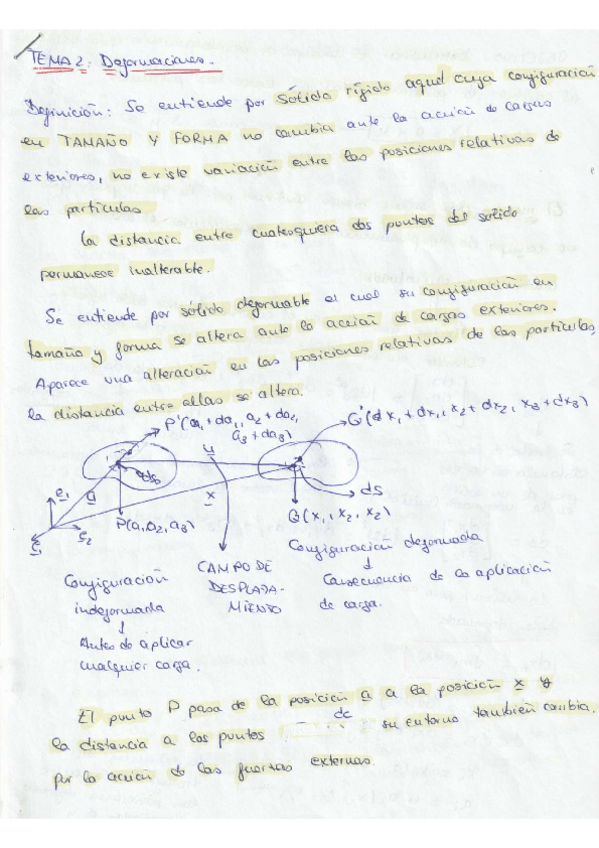 TEMA 2: Deformaciones.
Definición: Se entiende por sólido rígido aquel cuya configuración
en TAMAÑO Y FORMA no cambia ante la acción de cargas
exteriores, no existe variación entre las posiciones relativas de
las partículas
La distancia entre cualesquiera dos puntos del sólido
permanece inalterable.
Se entiende por sólido deformable el cual su configuración en
tamaño y forma se altera ante la acción de cargas exteriores.
Aparece una alteración en las posiciones relativas de las partículas,
la distancia entre ellas se altera.
P'(a1 + da1, a2 + da2,
a3 + da3)
G'(dx1 + dx1, x2 + dx2, x3 + dx3)
u
ds0
a
x
ds
e1
e2
e1
P(a1, a2, a3)
G(x1, x2, x2)
Configuración deformada
Consecuencia de la aplicación
de carga.
CAMPO DE
DESPLAZA-
MIENTO
Configuración
indeformada
Antes de aplicar
cualquier carga.
El punto P pasa de la posición a a la posición x y
la distancia a los puntos de su entorno también cambia.
por la acción de las fuerzas externas.